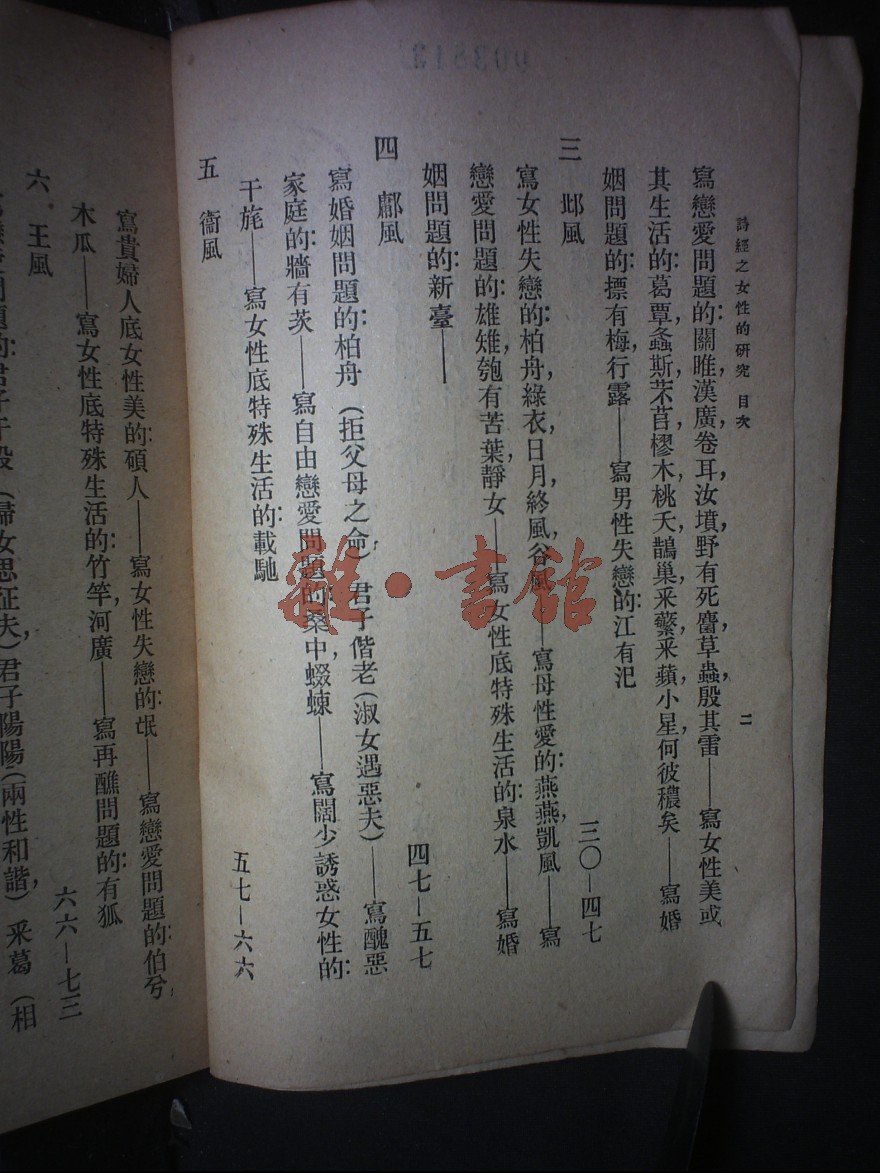 詩經之女性的研究 目次 二
寫戀愛問題的:關雎,漢廣,卷耳,汝墳,野有死麕,草蟲,殷其雷——寫女性美或
其生活的:葛覃,螽斯,芣苢,樛木,桃夭,鵲巢,釆蘩,釆蘋,小星,何彼穠矣——寫婚
姻問題的:摽有梅,行露——寫男性失戀的:江有汜
三 邶風 三〇—四七
寫女性失戀的:柏舟,綠衣,日月,終風,谷風——寫母性愛的:燕燕,凱風——寫
戀愛問題的:雄雉,匏有苦葉,靜女——寫女性底特殊生活的:泉水——寫婚
姻問題的:新臺——
四 鄘風 四七—五七
寫婚姻問題的:柏舟(拒父母之命)君子偕老(淑女遇惡夫)——寫醜惡
家庭的:牆有茨——寫自由戀愛問題的:桑中,蝃蝀——寫闊少誘惑女性的:
干旄——寫女性底特殊生活的:載馳
五 衞風 五七—六六
寫貴婦人底女性美的:碩人——寫女性失戀的:氓——寫戀愛問題的:伯兮,
木瓜——寫女性底特殊生活的:竹竿,河廣——寫再醮問題的:有狐
六 王風 六六—七三
問題的:君子于役(婦女思征夫)君子陽陽(兩性和諧),釆葛(相
書館